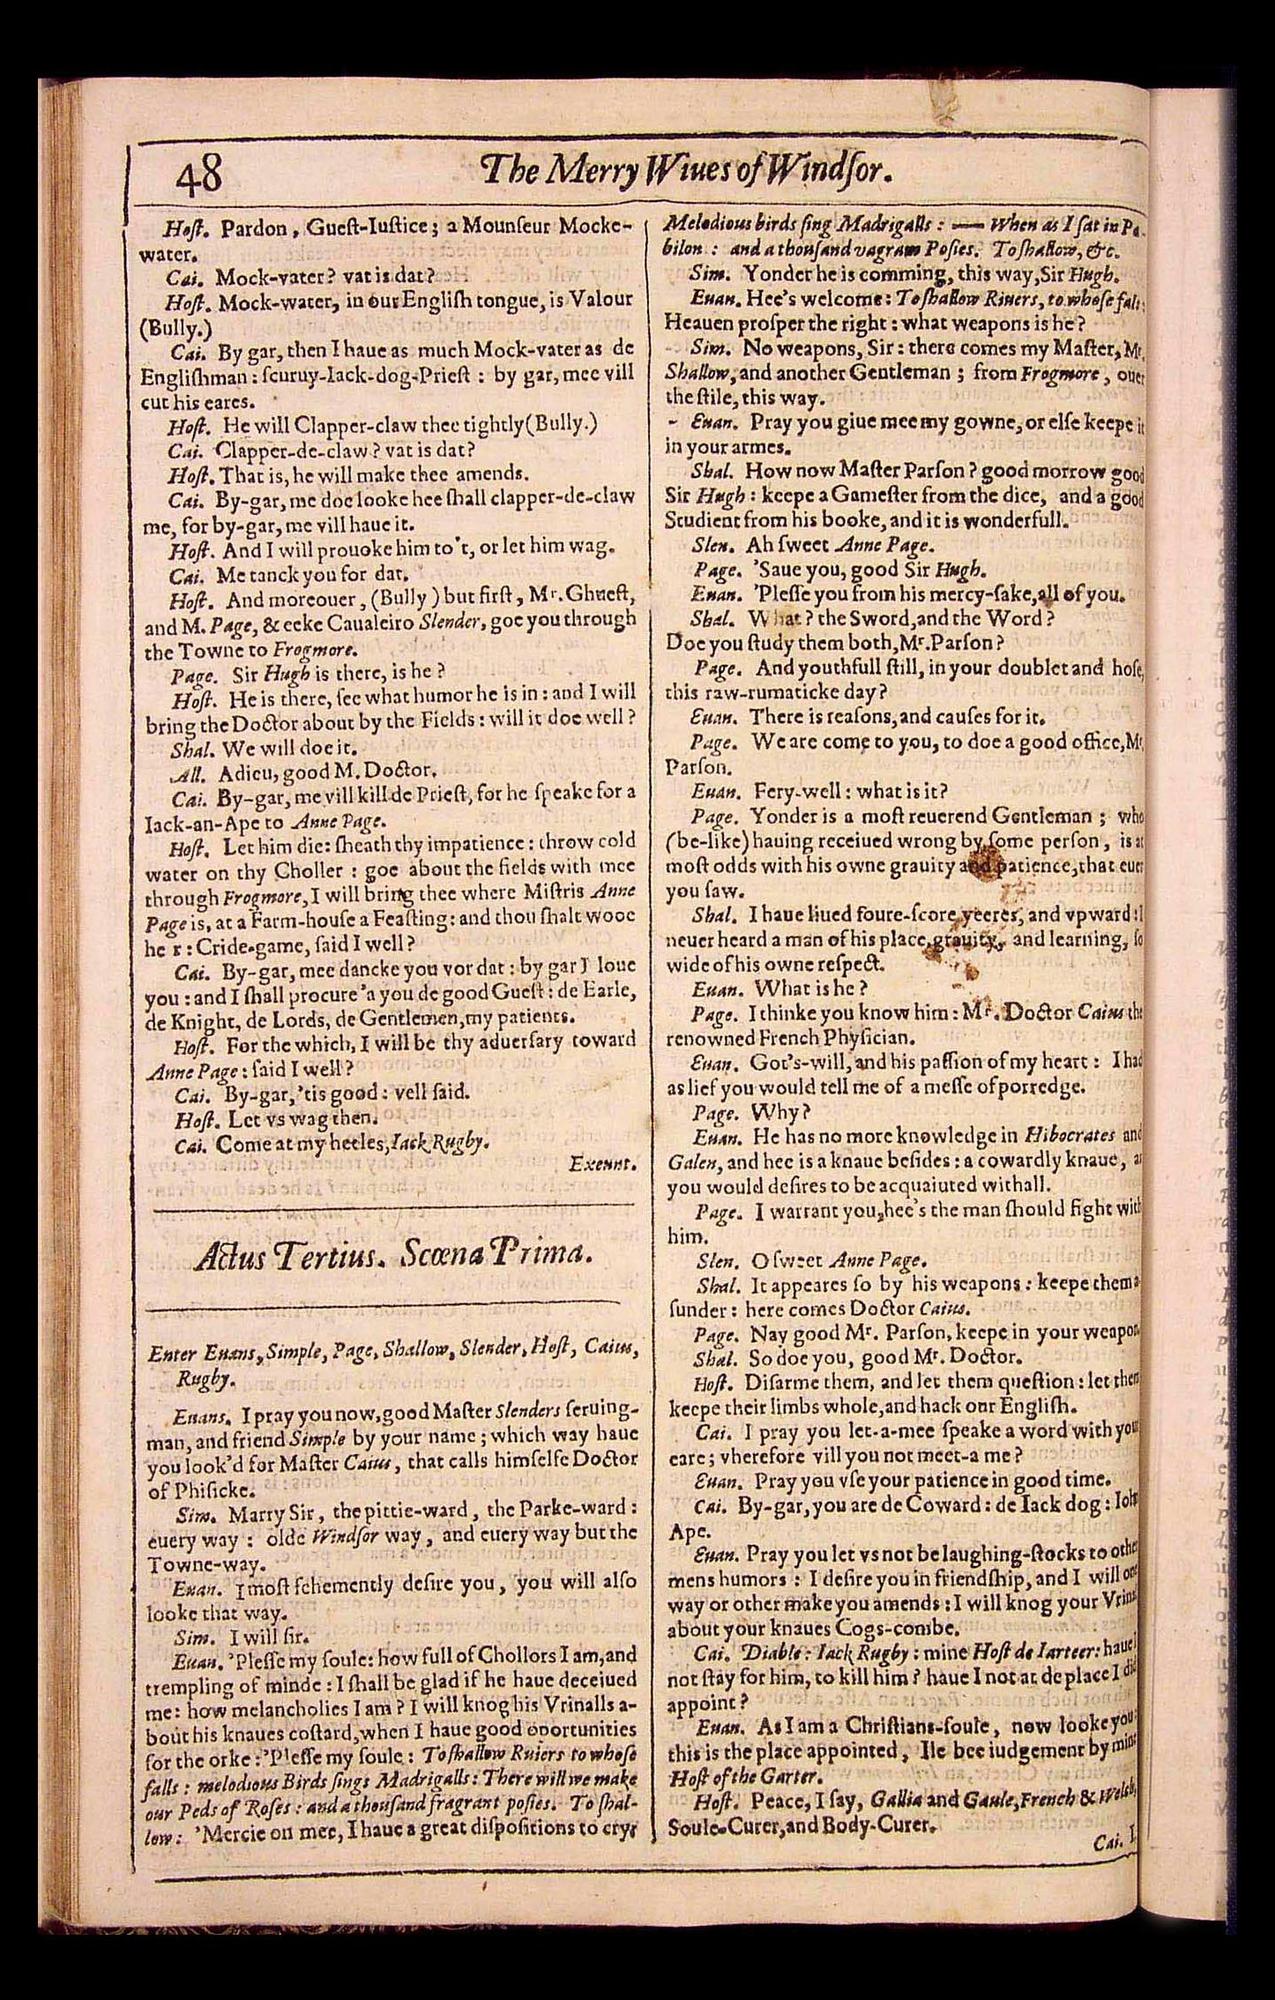 48
The Merry Wiues of Windſor.
Hoſt. Pardon, Gueſt-Iuſtice; a Mounſeur Mocke-
water.
Cai. Mock-vater? vat is dat?
Hoſt. Mock-water, in our Engliſh tongue, is Valour
(Bully.)
Cai. By gar, then I haue as much Mock-vater as de
Engliſhman: ſcuruy-Iack-dog-Prieſt : by gar, mee vill
cut his eares.
Hoſt. He will Clapper-claw thee tightly(Bully.)
Cai. Clapper-de-claw? vat is dat?
Hoſt. That is, he will make thee amends.
Cai. By-gar, me doe looke hee ſhall clapper-de-claw
me, for by-gar, me vill haue it.
Hoſt. And I will prouoke him to't, or let him wag.
Cai. Me tanck you for dat.
Hoſt. And moreouer, (Bully) but firſt, Mr. Ghueſt,
and M. Page, & eeke Caualeiro Slender, goe you through
the Towne to Frogmore.
Page. Sir Hugh is there, is he?
Hoſt. He is there, ſee what humor he is in: and I will
bring the Doctor about by the Fields: will it doe well?
Shal. We will doe it.
All. Adieu, good M. Doctor.
Cai. By-gar, me vill kill de Prieſt, for he ſpeake for a
Iack-an-Ape to Anne Page.
Hoſt. Let him die: ſheath thy impatience: throw cold
water on thy Choller : goe about the fields with mee
through Frogmore, I will bring thee where Miſtris Anne
Page is, at a Farm-houſe a Feaſting: and thou ſhalt wooe
he r: Cride-game, ſaid I well?
Cai. By-gar, mee dancke you vor dat: by gar I loue
you: and I ſhall procure 'a you de good Gueſt: de Earle,
de Knight, de Lords, de Gentlemen, my patients.
Hoſt. For the which, I will be thy aduerſary toward
Anne Page: ſaid I well?
Cai. By-gar, 'tis good: vell ſaid.
Hoſt. Let vs wag then.
Cai. Come at my heeles, Iack Rugby.
Exeunt.
Actus Tertius. Scœna Prima.
Enter Euans, Simple, Page, Shallow, Slender, Hoſt, Caius,
Rugby.
Euans. I pray you now, good Maſter Slenders ſeruing-
man, and friend Simple by your name; which way haue
you look'd for Maſter Caius, that calls himſelfe Doctor
of Phiſicke.
Sim. Marry Sir, the pittie-ward, the Parke-ward:
euery way : olde Windſor way, and euery way but the
Towne-way.
Euan. I moſt fehemently deſire you, you will alſo
looke that way.
Sim. I will ſir.
Euan. 'Pleſſe my ſoule: how full of Chollors I am, and
trempling of minde: I ſhall be glad if he haue deceiued
me: how melancholies I am? I will knog his Vrinalls a-
bout his knaues coſtard, when I haue good oportunities
for the orke: 'Pleſſe my ſoule: To ſhallow Ruiers to whoſe
falls: melodious Birds ſings Madrigalls: There will we make
our Peds of Roſes: and a thouſand fragrant poſies. To ſhal-
low: 'Mercie on mee, I haue a great diſpoſitions to cry.
Melodious birds ſing Madrigalls: — When as I ſat in Pa-
bilon: and a thouſand vagram Poſies. To ſhallow, &c.
Sim. Yonder he is comming, this way, Sir Hugh.
Euan. Hee's welcome: To ſhallow Riuers, to whoſe fals:
Heauen proſper the right: what weapons is he?
Sim. No weapons, Sir: there comes my Maſter, Mr.
Shallow, and another Gentleman; from Frogmore, ouer
the ſtile, this way.
Euan. Pray you giue mee my gowne, or elſe keepe it
in your armes.
Shal. How now Maſter Parſon? good morrow good
Sir Hugh: keepe a Gameſter from the dice, and a good
Studient from his booke, and it is wonderfull.
Slen. Ah ſweet Anne Page.
Page. 'Saue you, good Sir Hugh.
Euan. 'Pleſſe you from his mercy-ſake, all of you.
Shal. What? the Sword, and the Word?
Doe you ſtudy them both, Mr. Parſon?
Page. And youthfull ſtill, in your doublet and hoſe,
this raw-rumaticke day?
Euan. There is reaſons, and cauſes for it.
Page. We are come to you, to doe a good office, Mr.
Parſon.
Euan. Fery-well: what is it?
Page. Yonder is a moſt reuerend Gentleman; who
(be-like) hauing receiued wrong by ſome perſon, is at
moſt odds with his owne grauity and patience, that euer
you ſaw.
Shal. I haue liued foure-ſcore yeeres, and vpward: I
neuer heard a man of his place, grauity, and learning, ſo
wide of his owne reſpect.
Euan. What is he?
Page. I thinke you know him: Mr. Doctor Caius the
renowned French Phyſician.
Euan. Got's-will, and his paſſion of my heart: I had
as lief you would tell me of a meſſe of porredge.
Page. Why?
Euan. He has no more knowledge in Hibocrates and
Galen, and hee is a knaue beſides: a cowardly knaue, as
you would deſires to be acquaiuted withall.
Page. I warrant you, hee's the man ſhould fight with
him.
Slen. O ſweet Anne Page.
Shal. It appeares ſo by his weapons: keepe them a-
ſunder: here comes Doctor Caius.
Page. Nay good Mr. Parſon, keepe in your weapon.
Shal. So doe you, good Mr. Doctor.
Hoſt. Diſarme them, and let them queſtion: let them
keepe their limbs whole, and hack our Engliſh.
Cai. I pray you let-a-mee ſpeake a word with your
eare; vherefore vill you not meet-a me?
Euan. Pray you vſe your patience in good time.
Cai. By-gar, you are de Coward: de Iack dog: Iohn
Ape.
Euan. Pray you let vs not be laughing-ſtocks to other
mens humors: I deſire you in friendſhip, and I will one
way or other make you amends: I will knog your Vrinal
about your knaues Cogs-combe.
Cai. Diable: Iack Rugby: mine Hoſt de Iarteer: haue I
not ſtay for him, to kill him? haue I not at de place I did
appoint?
Euan. As I am a Chriſtians-ſoule, now looke you:
this is the place appointed, Ile bee iudgement by mine
Hoſt of the Garter.
Hoſt. Peace, I ſay, Gallia and Gaule, French & Welch,
Soule-Curer, and Body-Curer.
Cai. I,